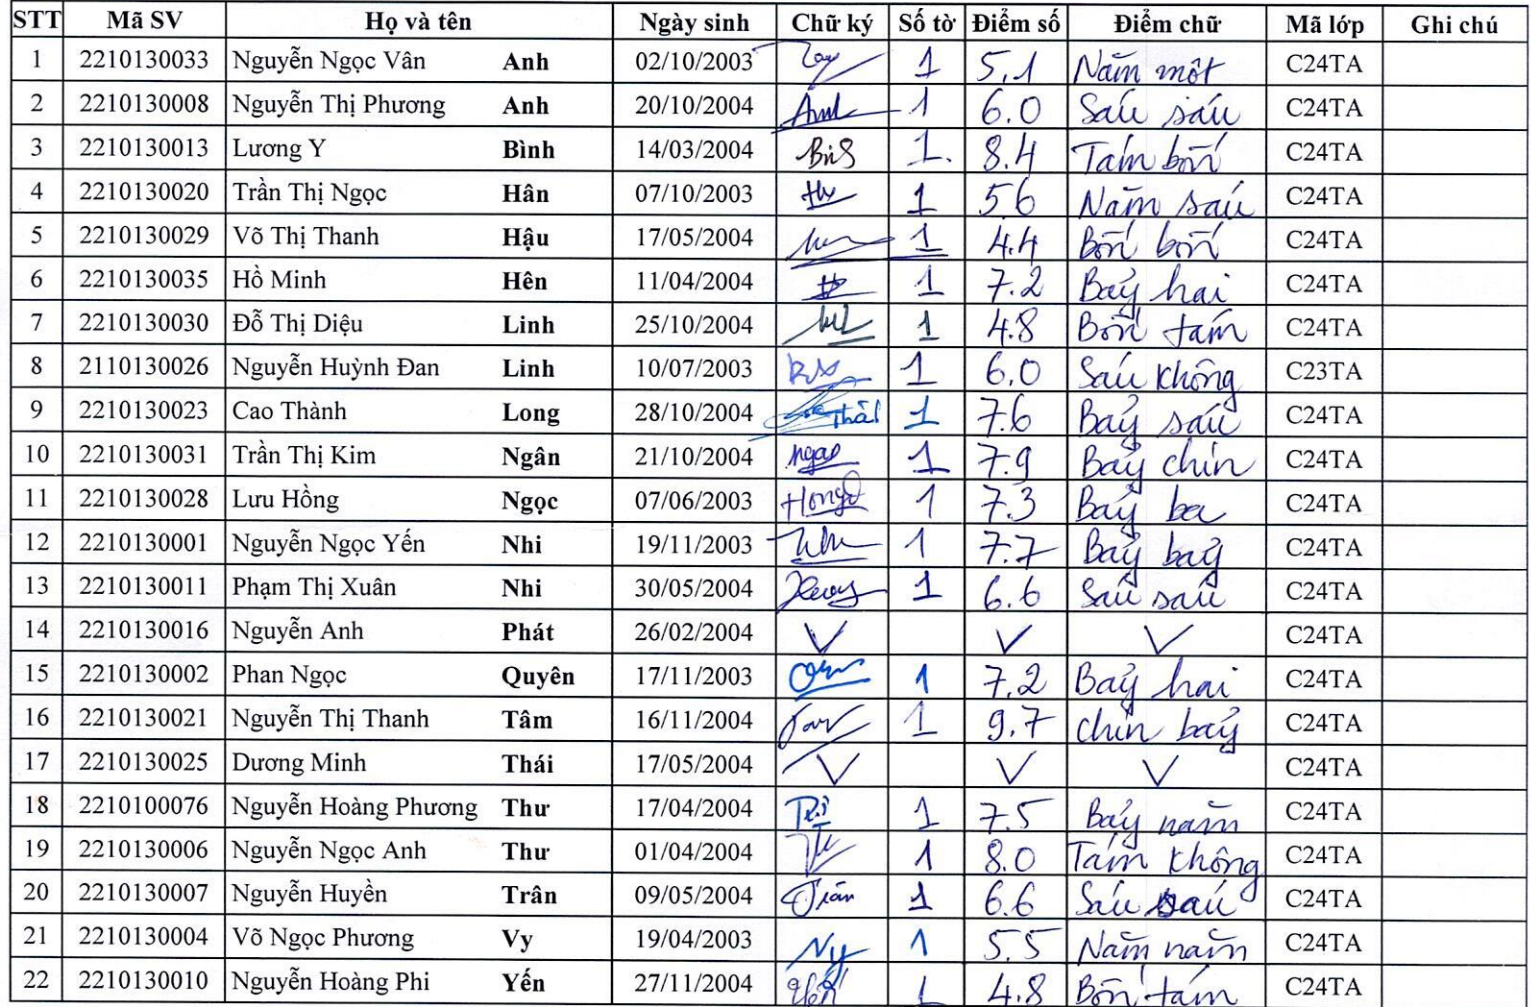 STT Mã SV Họ và tên Ngày sinh Chữ ký Số tờ Điểm số Điểm chữ Mã lớp Ghi chú
1 2210130033 Nguyễn Ngọc Vân Anh 02/10/2003 1 5,1 Năm một C24TA
2 2210130008 Nguyễn Thị Phương Anh 20/10/2004 Anh 1 6.0 Sáu sáu C24TA
3 2210130013 Lương Y Bình 14/03/2004 1. 8.4 Tám bốn C24TA
4 2210130020 Trần Thị Ngọc Hân 07/10/2003 1 5 6 Năm sáu C24TA
5 2210130029 Võ Thị Thanh Hậu 17/05/2004 1 4.4 Bốn bốn C24TA
6 2210130035 Hồ Minh Hên 11/04/2004 1 7.2 Bảy hai C24TA
7 2210130030 Đỗ Thị Diệu Linh 25/10/2004 1 4.8 Bốn tám C24TA
8 2110130026 Nguyễn Huỳnh Đan Linh 10/07/2003 1 6.0 Sáu không C23TA
9 2210130023 Cao Thành Long 28/10/2004 1 7.6 Bảy sáu C24TA
10 2210130031 Trần Thị Kim Ngân 21/10/2004 1 7.9 Bảy chín C24TA
11 2210130028 Lưu Hồng Ngọc 07/06/2003 1 7.3 Bảy ba C24TA
12 2210130001 Nguyễn Ngọc Yến Nhi 19/11/2003 1 7.7 Bảy bảy C24TA
13 2210130011 Phạm Thị Xuân Nhi 30/05/2004 1 6.6 Sáu sáu C24TA
14 2210130016 Nguyễn Anh Phát 26/02/2004 V V V C24TA
15 2210130002 Phan Ngọc Quyên 17/11/2003 1 7.2 Bảy hai C24TA
16 2210130021 Nguyễn Thị Thanh Tâm 16/11/2004 1 9.7 Chín bảy C24TA
17 2210130025 Dương Minh Thái 17/05/2004 V V V C24TA
18 2210100076 Nguyễn Hoàng Phương Thư 17/04/2004 1 7.5 Bảy năm C24TA
19 2210130006 Nguyễn Ngọc Anh Thư 01/04/2004 1 8.0 Tám không C24TA
20 2210130007 Nguyễn Huyền Trân 09/05/2004 Trân 1 6.6 Sáu sáu C24TA
21 2210130004 Võ Ngọc Phương Vy 19/04/2003 1 5.5 Năm năm C24TA
22 2210130010 Nguyễn Hoàng Phi Yến 27/11/2004 Yến 1 4.8 Bốn tám C24TA